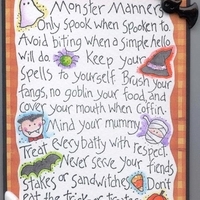 Monster Manners
Only spook when spoken to.
Avoid biting when a simple hello
will do. Keep your
spells to yourself. Brush your
fangs, no goblin your food, and
cover your mouth when coffin.
Mind your mummy.
Treat every batty with respect.
Never serve your fiends
stakes or sandwitches. Don't
eat the Trick or Treaters